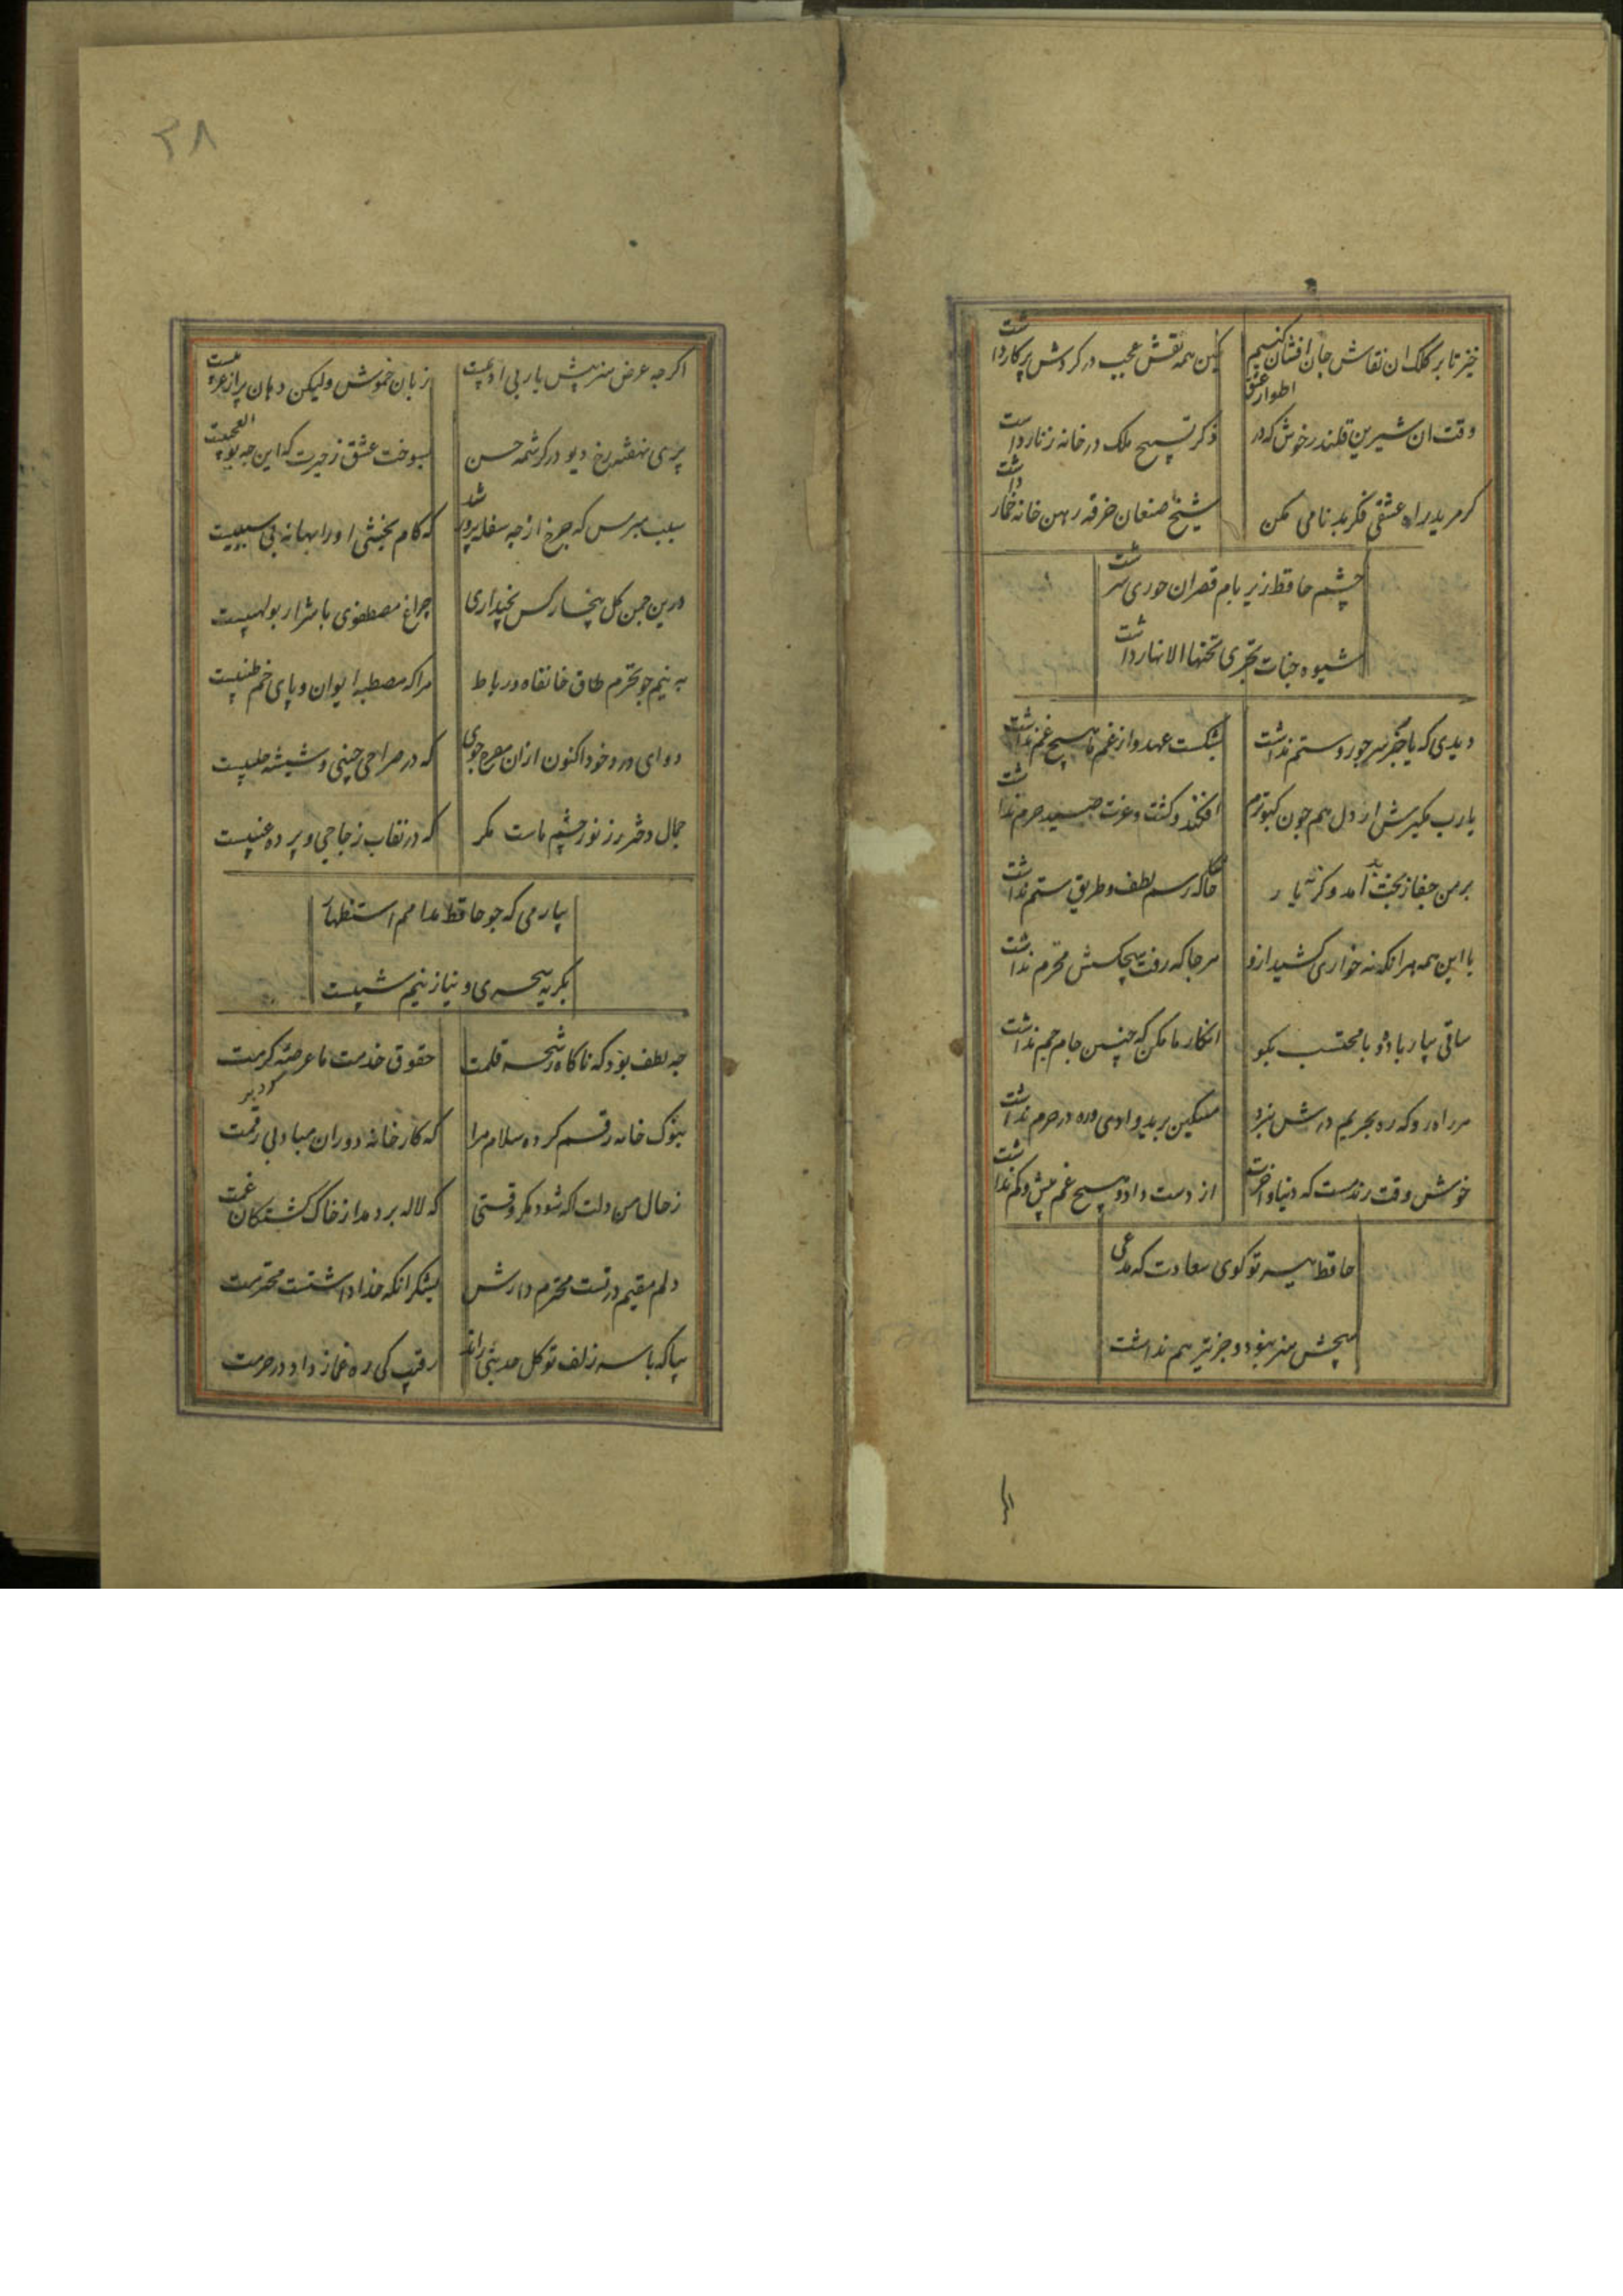 خیز تا بر کلک ان نقاش جان افشان کنیم
کین همه نقش عجیب در کردش پرکار داشت
وقت ان شیرین قلندر خوش که در اطوار عشق
ذکر تسبیح ملک در خانه زنار داشت
کر مرید راه عشقی فکر بدنامی مکن
شیخ صنعان خرقه رهن خانه خمار داشت
چشم حافظ زیر بام قصر ان حوری سرشت
شیوه جنات تجری تحتها الانهار داشت
دیدی که یا جز سر جور و ستم نداشت
بشکست عهد و از غم ما هیچ غم نداشت
یارب مکیرش ار دل هم جون کبوترم
افکند و کشت و عزت صید حرم نداشت
بر من جفا ز بخت بد آمد وکرنه یار
حاکه رسم لطف و طریق ستم نداشت
با این همه هر انکه نه خواری کشید ازو
هر جا که رفت هیچکسش محترم نداشت
ساقی بیار باده و با محتسب بکو
انکار ما مکن که چنین جام جم نداشت
هر راه رو که ره بحریم درش نبرد
مسکین برید وادی و ره در حرم نداشت
خوش وقت رند مست که دنیا و اخرت
از دست داد و هیچ غم بیش و کم نداشت
حافظ ببر تو کوی سعادت که مدعی
هیچش هنر نبود و خبر نیز هم نداشت
۳۸
اکر جه عرض هنر پیش یار بی ادبیست
زبان خموش ولیکن دهان پر از عربیست
پری نهفته رخ و دیو در کرشمه حسن
بسوخت عشق ز حیرت که این جه بوالعجبیست
سبب مپرس که جرخ از چه سفله پرور شد
که کام بخشی او را بهانه بی سببیست
درین جمن کل بیخار کس نچیداری
چراغ مصطفوی با شرار بولهبیست
به نیم جو نخرم طاق خانقاه و رباط
مرا که مصطبه ایوان و پای خم طنبیست
دوای درد خود اکنون ازان مفرح جوی
که در صراحی چینی و شیشه حلبیست
جمال دختر رز نور چشم ماست مکر
که در نقاب زجاجی و پرده عنبیست
بیار می که جو حافظ مدامم استظهار
بکریه سحری و نیاز نیم شبیست
جه لطف بود که ناکاه رشحه قلمت
حقوق خدمت ما عرضه کرد بر کرمت
بنوک خامه رقم کرده سلام مرا
که کارخانه دوران مباد بی رقمت
ز حال من دلت اکه شود مکر وقتی
که لاله بر دمد از خاک کشتکان غمت
دلم مقیم در تست محترم دارش
بشکر انکه خدا داشتست محترمت
بیا که با سر زلف تو کل حدیثی راند
رقیب کی ره غماز داد در حرمت